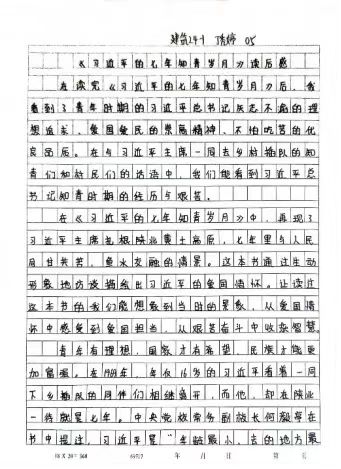 建筑24-1 05
《习近平的七年知青岁月》读后感
在读完《习近平的七年知青岁月》后，我
看到了青年时期的习近平总书记矢志不渝的理
想追求、爱国爱民的崇高精神、不怕吃苦的优
良品质。在与习近平主席一同去乡村插队的知
青们和村民们的访谈中，我们能看到习近平总
书记知青时期的经历与艰苦。
在《习近平的七年知青岁月》中，再现了
习近平主席扎根陕北黄土高原，七年里与人民
同甘共苦、鱼水交融的情景。这本书通过生动
形象地访谈描绘出习近平的爱国情怀。让读过
这本书的我们能想象到当时的景象，从爱国情
怀中感受到爱国担当，从艰苦奋斗中收获智慧。
青年有理想，国家才有希望，民族才能更
加富强。在1969年，年仅16岁的习近平看着一同
下乡插队的同伴们相继离开，而他，却在陕北
一待就是七年。中央党校常务副校长何毅亭在
书中提过，习近平是“年龄最小、去的地方最
18×20=360 年 月 日 第 页